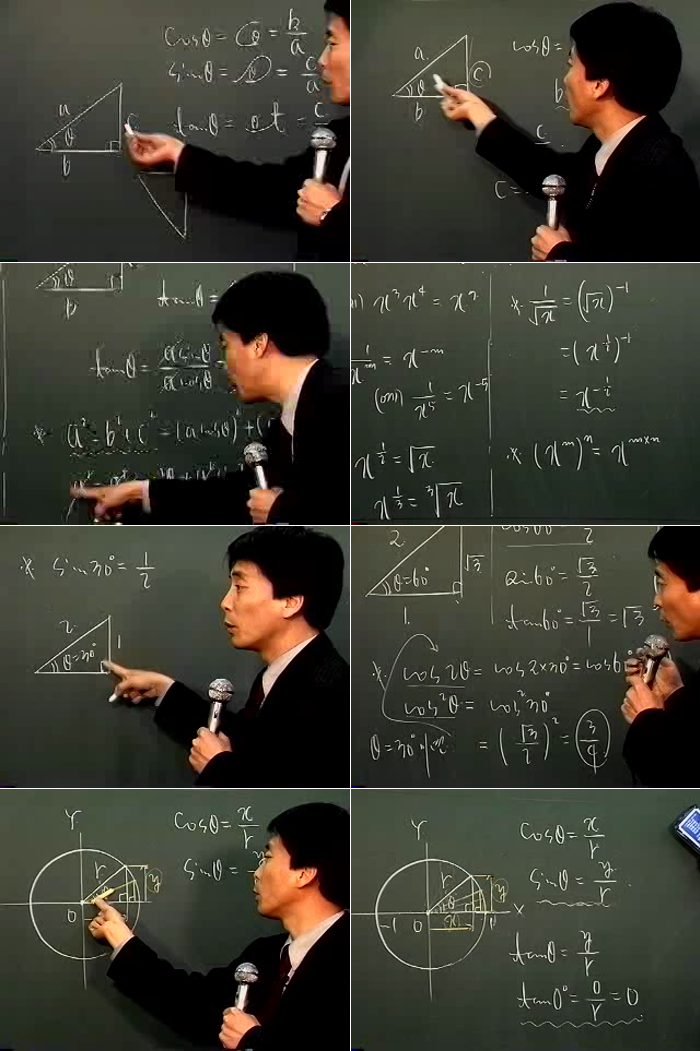 cosθ = = b/a
sinθ = = c/a
tanθ = = c
a
θ
b
a
c
θ
b
cosθ =
b
c
c =
θ
b
tanθ =
tanθ = a sinθ / a cosθ =
* a² = b² + c² = (a cosθ)² + (
x³ x⁴ = x⁷
= x⁻ᵐ
(예) 1/x⁵ = x⁻⁵
x^½ = √x
x^⅓ = ³√x
* 1/√x = (√x)⁻¹
= (x^½)⁻¹
= x^-½
* (xᵐ)ⁿ = x^m×n
* sin30° = 1/2
2
1
θ=30°
2
√3
θ=60°
1
2
sin60° = √3/2
tan60° = √3/1 = √3
* cos2θ = cos2×30° = cos60°
cos²θ = cos²30°
θ=30° = (√3/2)² = 3/4
Y
r
θ
y
0
cosθ = x/r
sinθ = y
Y
r
θ
y
-1 0 x 1 X
cosθ = x/r
sinθ = y/r
tanθ = y/r
tan0° = 0/r = 0